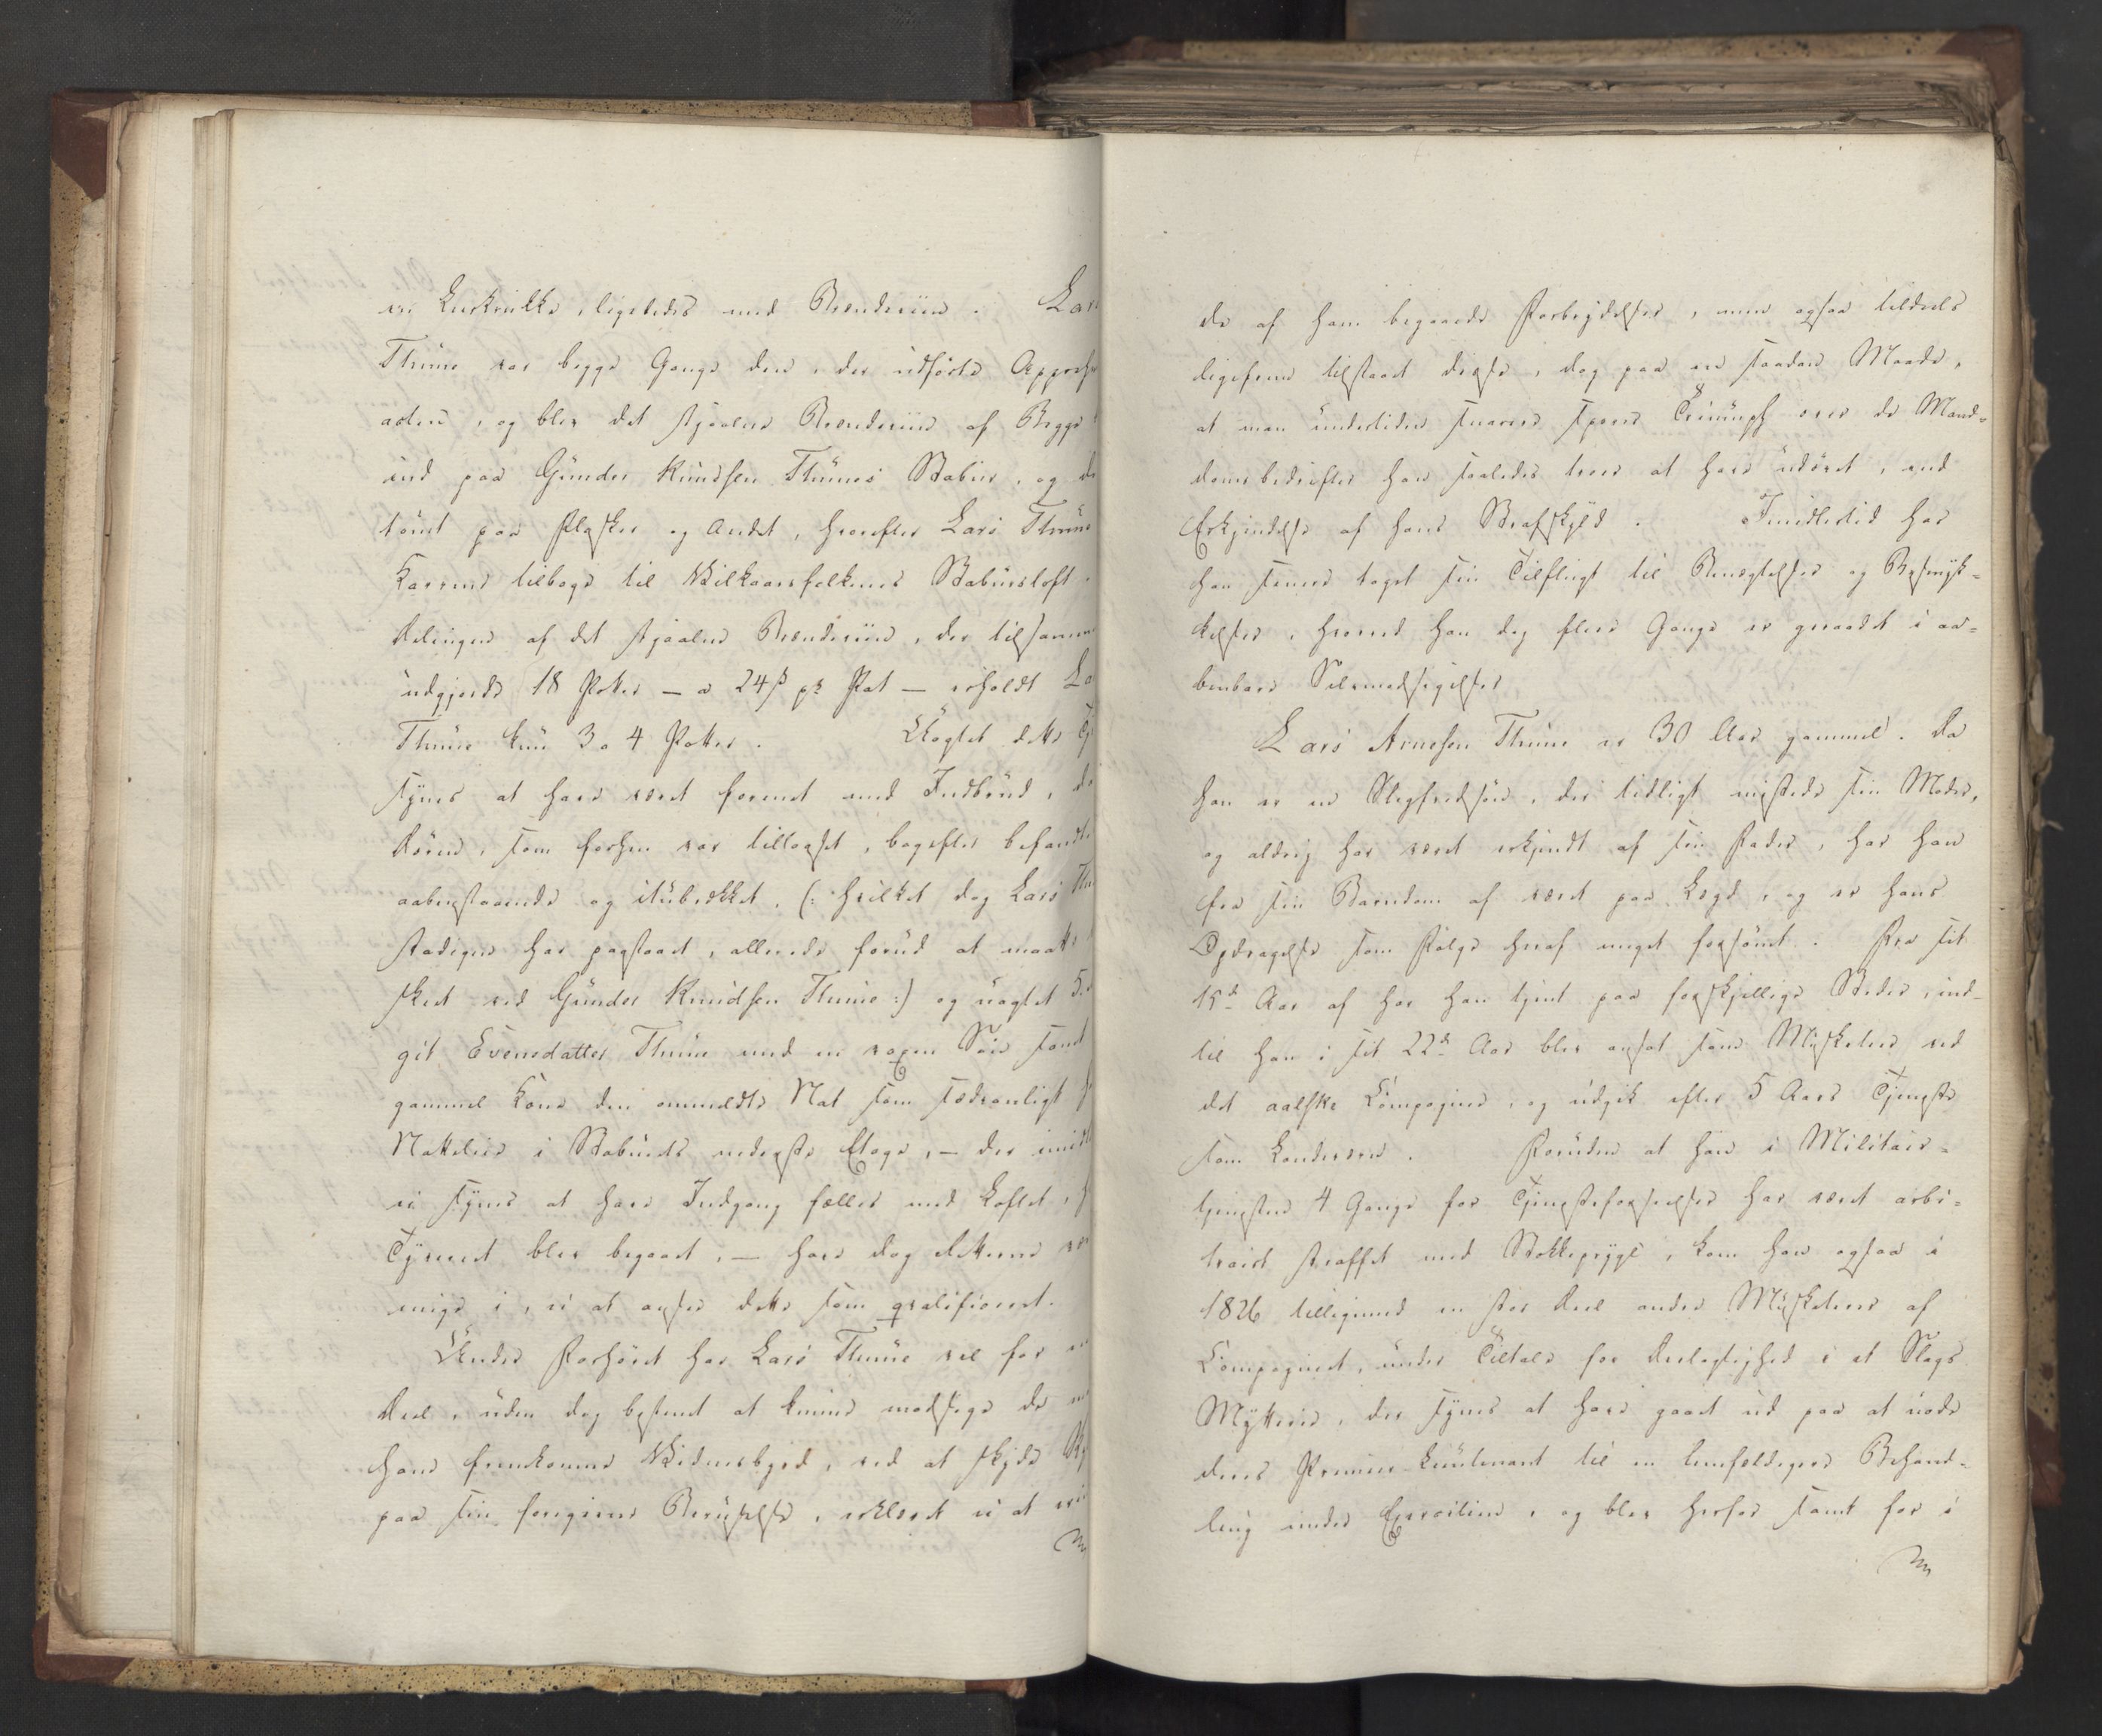 en Leerkrukke, ligeledes med Brændeviin. Lars
Thune var begge Gange den, der udførte Appreh
actien, og blev det stjaalne Brændeviin af Begge
ind paa Gunder Knudsen Thunes Stabur, og de
tømt paa Flasker og Andet, hvorefter Lars Thune
Karrene tilbage til Vilkaarsfolkenes Stabursloft.
Delingen af det stjaalne Brændeviin, der tilsamm
udgjorde 18 Potter — a 24 ß pr Pot — erholdt La
Thune kun 3 a 4 Potter. Uagtet dette Ty
synes at have været forenet med Indbrud, da
Døren, som forhen var tillaaset, bagefter befandt
aabenstaaende og itubrækket, (: hvilket dog Lars Thu
stadigen har paastaaet, allerede forud at maatte
skeet ved Gunder Knudsen Thune :) og uagtet Bir
git Evensdatter Thune med en voxen Søn samt
gammel Kone den ommeldte Nat som sædvanligt h
Natteleie i Staburets nederste Etage, — der imidl
ei synes at have Indgang fælles med Loftet, h
Tyveriet blev begaaet, — have dog Retterne vær
enige i, ei at ansee dette som qvalificeret.
Under Forhøret har Lars Thune vel for en
Deel, uden dog bestemt at kunne modsige de m
ham fremkomne Vidnesbyrd, ved at skyde
paa sin foregivne Beruselse, erklæret ei at eri
de af ham begaaede Forbrydelser, men ogsaa tildeels
ligefrem tilstaaet disse, dog paa en saadan Maade,
at man undertiden snarere sporer Triumph over de Mand-
doms bedrifter han saaledes troer at have udøvet, end
Erkjendelse af hans Strafskyld. Imidlertid har
han senere taget sin Tilflugt til Benægtelser og Besmyk-
kelser, hvorved han dog flere Gange er geraadet i aa-
benbare Selvmodsigelser
Lars Arnesen Thune er 30 Aar gammel. Da
han er en Slegfredsøn, der tidligt mistede sin Moder,
og aldrig har været erkjendt af sin Fader, har han
fra sin Barndom af været paa Lægd, og er hans
Opdragelse som Følge heraf meget forsømt. Fra sit
15de Aar af har han tjent paa forskjellige Steder, ind-
til han i sit 22de Aar blev ansat som Musketeer ved
det aalske Compagnie, og udgik efter 5 Aars Tjeneste
som Landeværn. Foruden at han i Militair-
tjenesten 4 Gange for Tjenesteforseelser har været arbi-
trairt straffet med Stokkeprygl, kom han ogsaa i
1826 tilligemed en stor Deel andre Musketerer af
Compagniet, under Tiltale for Deelagtighed i et Slags
Mytterie, der synes at have gaaet ud paa at nøde
deres Premier-Lieutenant til en lemfældigere Behand-
ling under Exercitien, og blev herfor samt for i